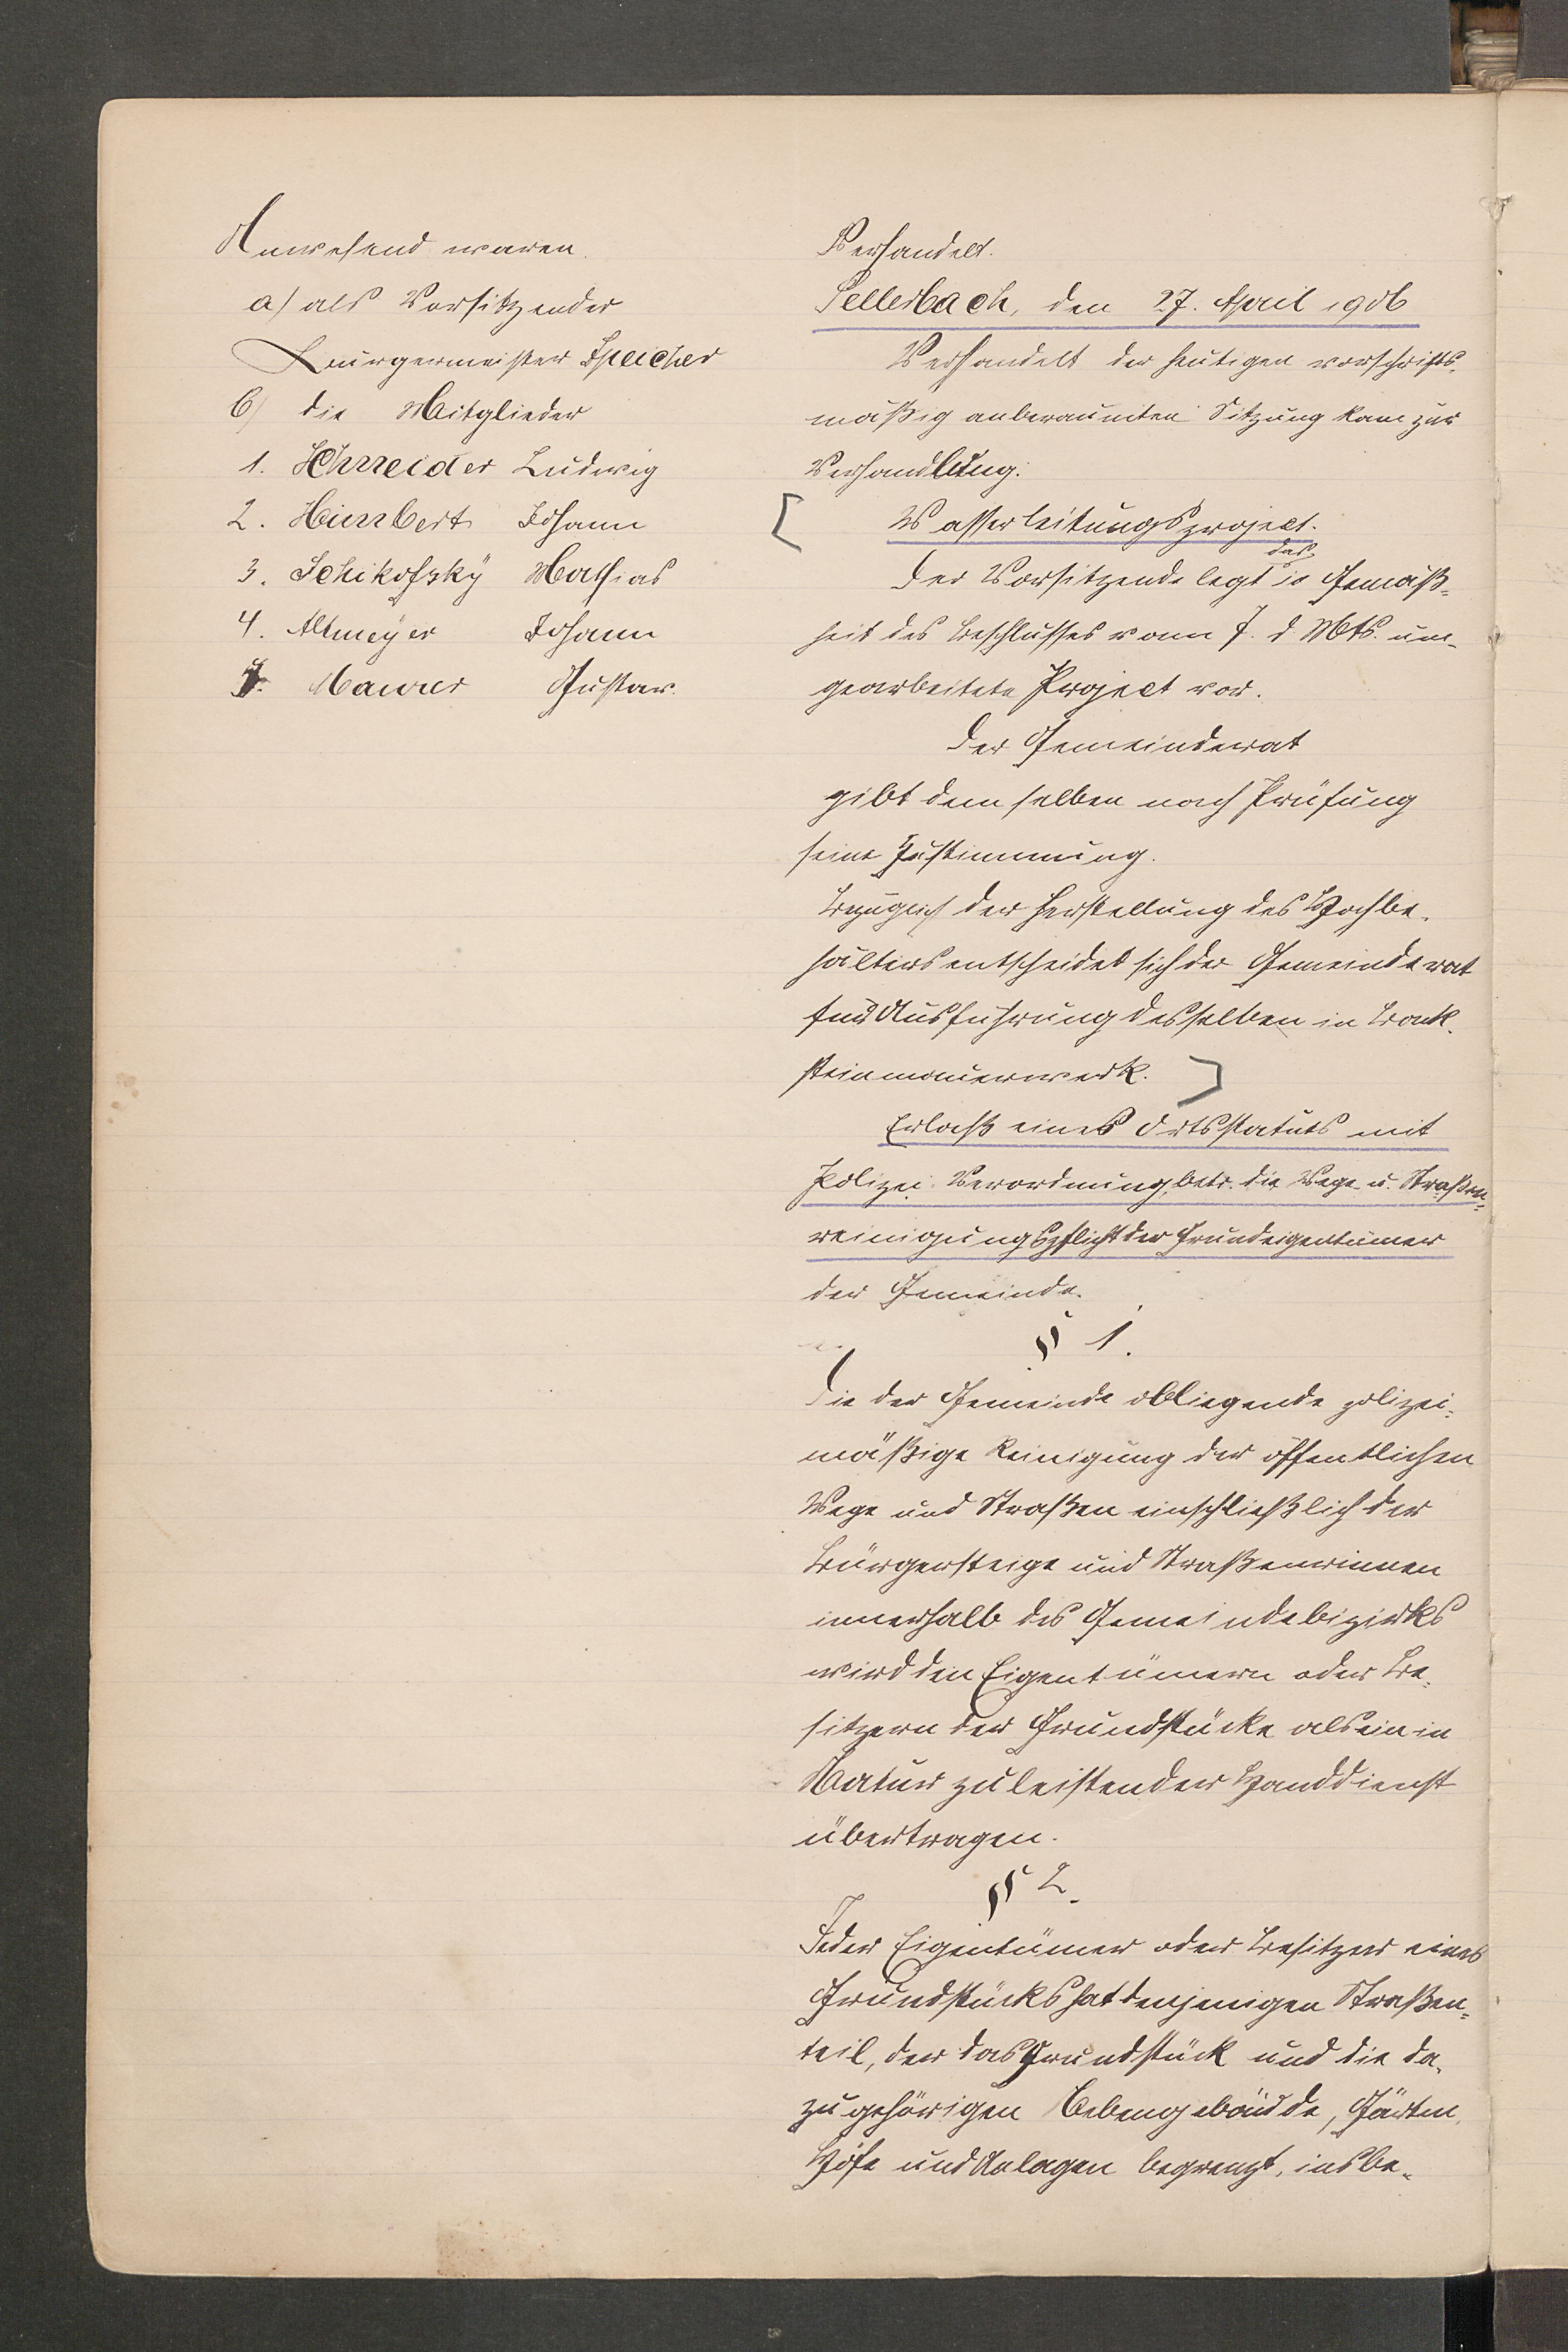 Anwesend waren.
a) als Vorsitzender
Bürgermeister Speicher
b) die Mitglieder
1. Schneider Ludwig
2. Humbert Johann
3. Schikofsky Mathias
4. Altmeyer Johann
5. Maurer Gustav.
Verhandelt.
Sellerbach, den 27. April 1906
Verhandelt der heutigen vorschrifts-
mäßig anberaumten Sitzung kam zur
Verhandlung:
Wasserleitungsproject.
Der Vorsitzende legt das in Gemäß-
heit des Beschlusses vom 7. d. Mts. um-
gearbeitete Project vor.
Der Gemeinderat
gibt demselben nach Prüfung
seine Zustimmung.
Bezüglich der Herstellung des Hochbe-
hälters entscheidet sich der Gemeinderat
für Ausführung desselben in Back-
steinmauerwerk.
Erlaß eines Ortsstatuts mit
Polizei-Verordnung, betr. die Wege- u. Straßen-
reinigungspflicht der Grundeigentümer
der Gemeinde.
§ 1.
Die der Gemeinde obliegende polizei-
mäßige Reinigung der öffentlichen
Wege und Straßen einschließlich der
Bürgersteige und Straßenrinnen
innerhalb des Gemeindebezirks
wird den Eigentümern oder Be-
sitzern der Grundstücke als ein in
Natur zu leistender Handdienst
übertragen.
§ 2.
Jeder Eigentümer oder Besitzer eines
Grundstücks hat denjenigen Straßen-
teil, der das Grundstück und die da-
zu gehörigen Nebengebäude, Gärten,
Höfe und Anlagen begrenzt, insbe-